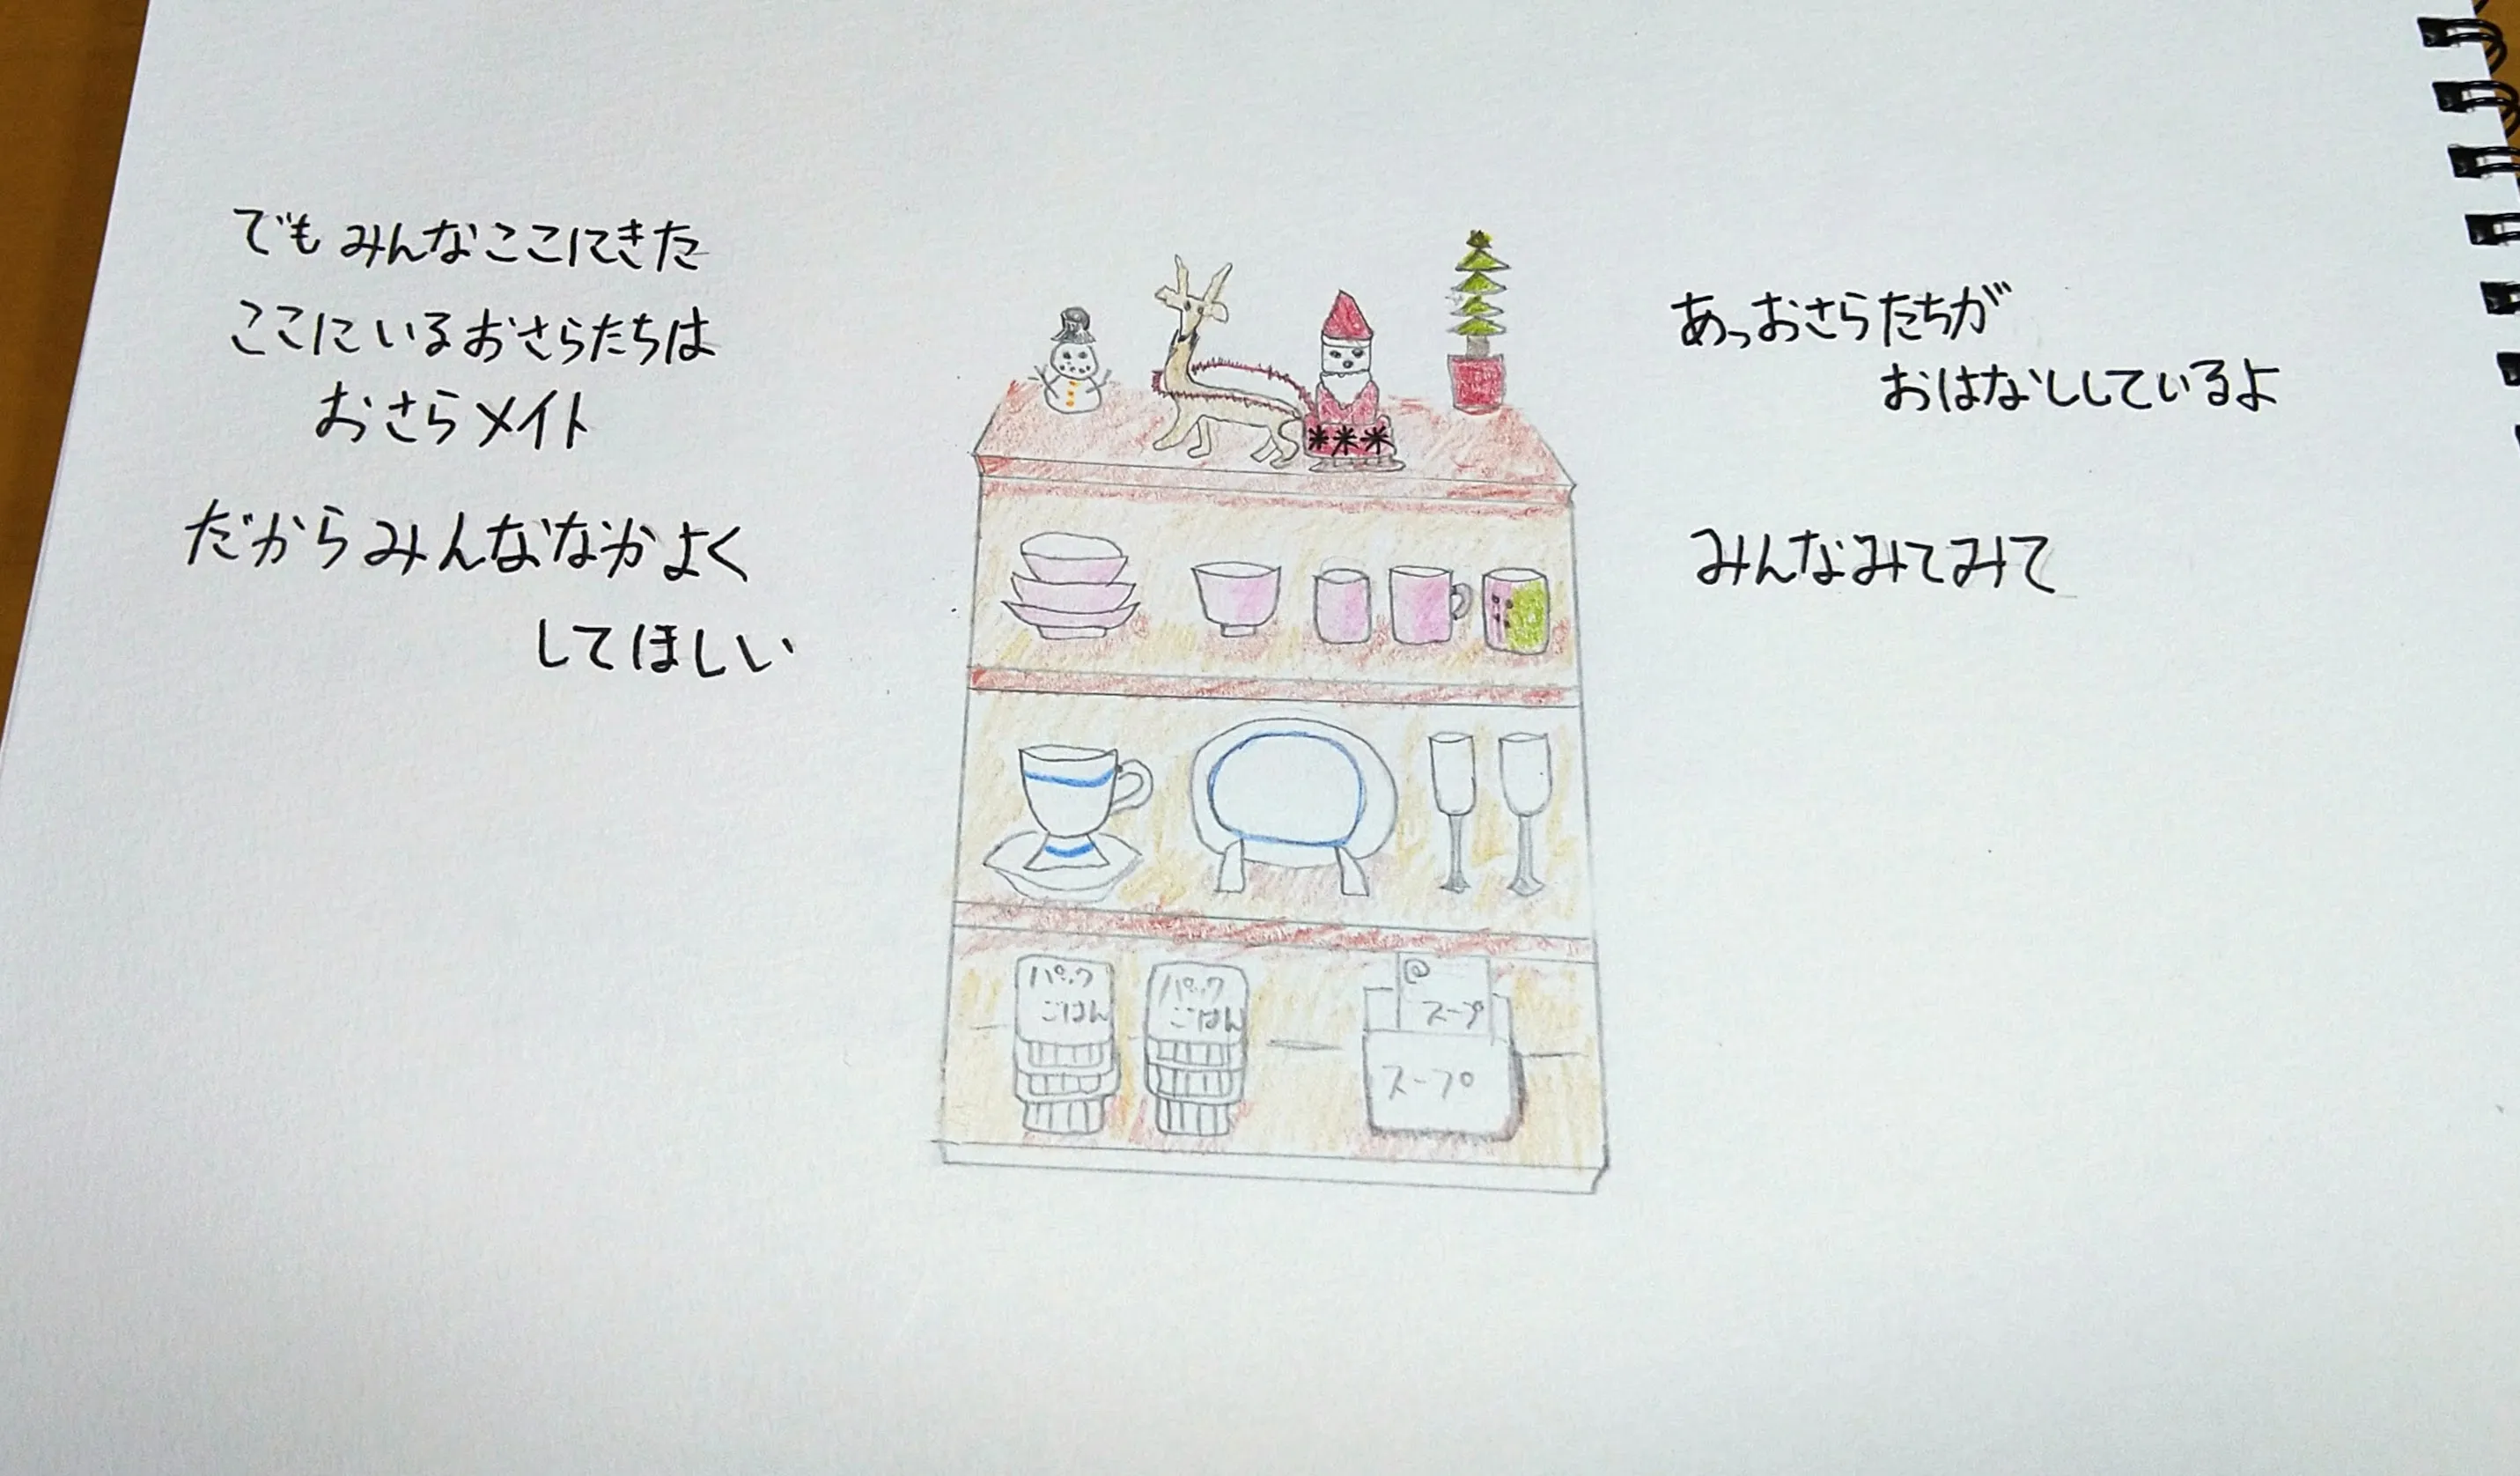 でもみんなここにきた
ここにいるおさらたちは
おさらメイト
だからみんななかよく
してほしい
あっおさらたちが
おはなししているよ
みんなみてみて
パック
ごはん
パック
ごはん
スープ
スープ